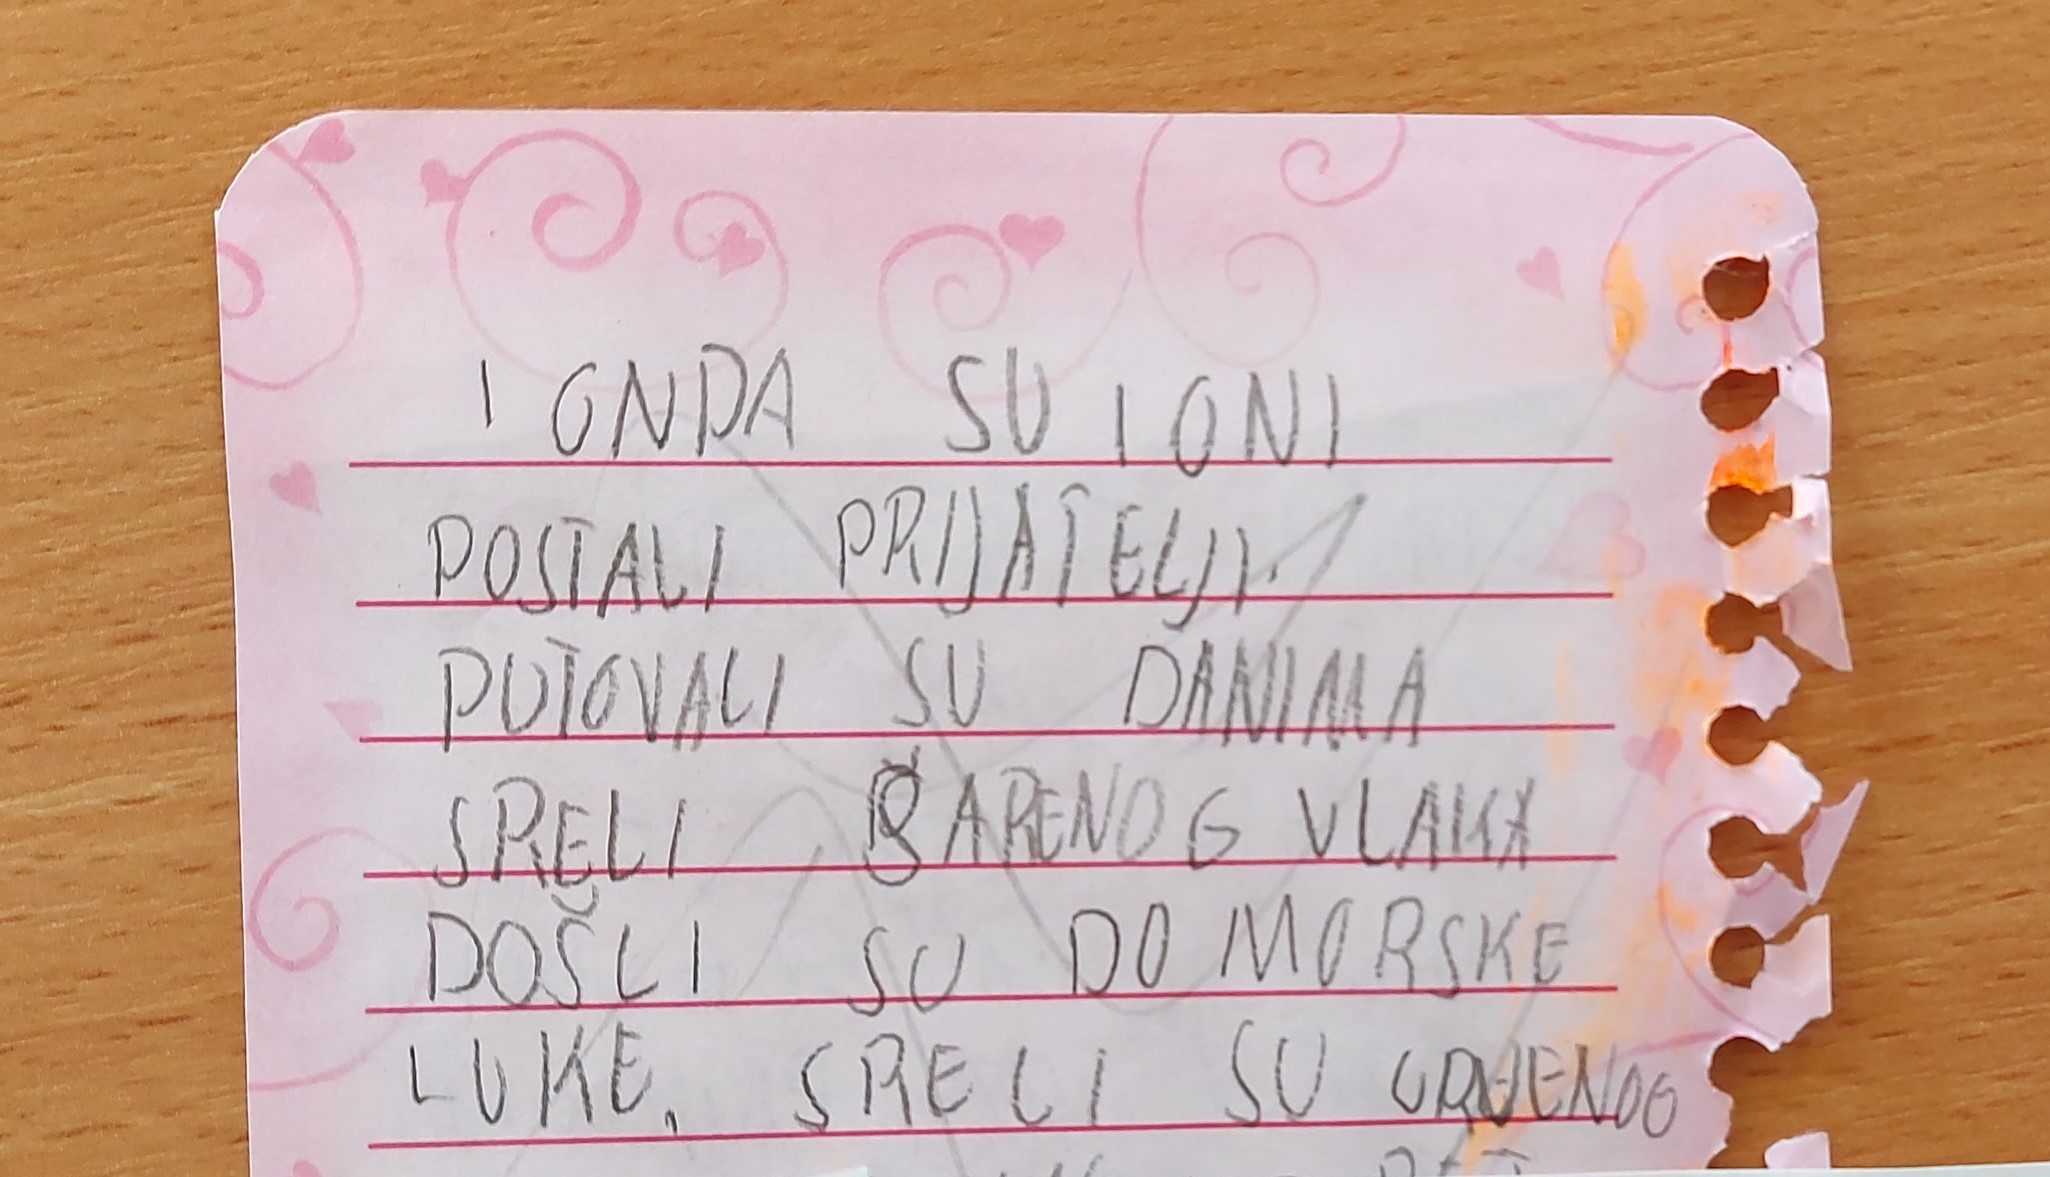 I ONDA SU I ONI
POSTALI PRIJATELJI.
PUTOVALI SU DANIMA
SRELI ŠARENOG VLAKA
DOŠLI SU DO MORSKE
LUKE. SRELI SU CRVENOG